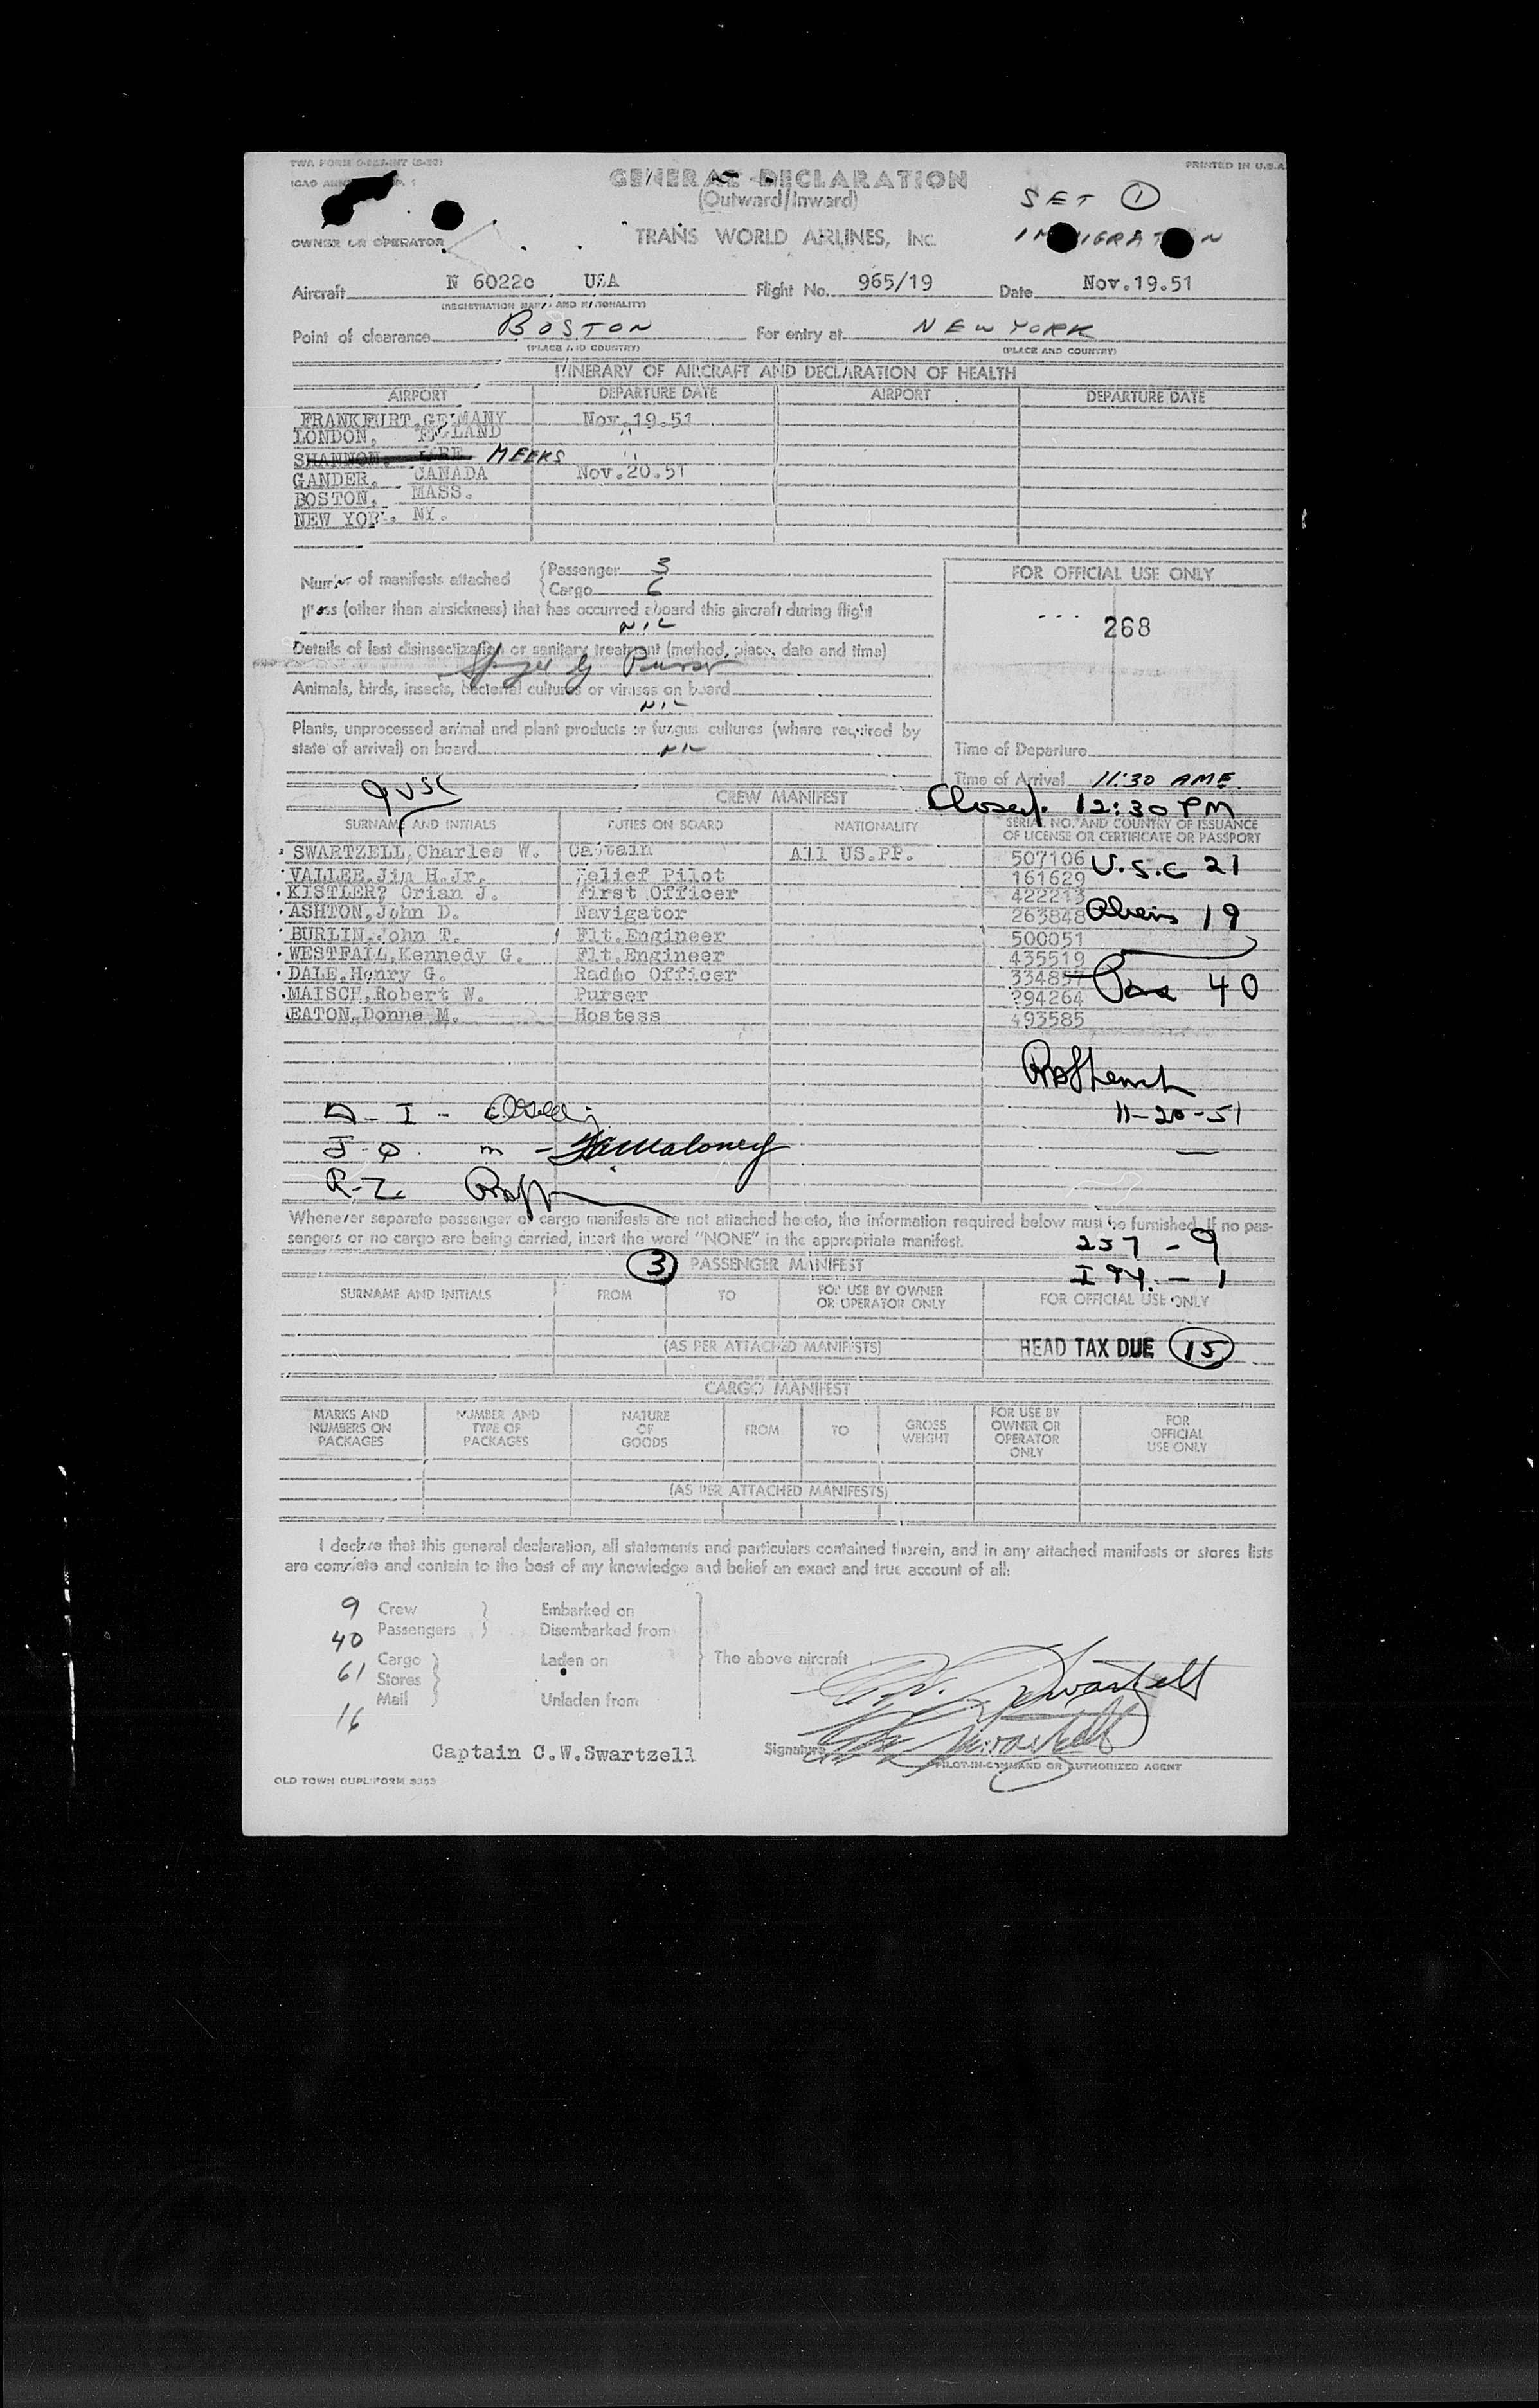 PRINTED IN U.S.A.
GENERAL DECLARATION
(Outward/Inward)
SET 1
IMMIGRATION
OWNER OR OPERATOR
TRANS WORLD AIRLINES, Inc.
Aircraft N 6022c USA Flight No. 965/19 Date Nov.19.51
(REGISTRATION MARKS AND NATIONALITY)
Point of clearance BOSTON For entry at NEW YORK
(PLACE AND COUNTRY) (PLACE AND COUNTRY)
ITINERARY OF AIRCRAFT AND DECLARATION OF HEALTH
AIRPORT DEPARTURE DATE AIRPORT DEPARTURE DATE
FRANKFURT, GERMANY Nov.19.51
LONDON, ENGLAND "
SHANNON, EIRE MEEKS "
GANDER, CANADA Nov.20.51
BOSTON, MASS.
NEW YORK. NY.
Number of manifests attached { Passenger 3
{ Cargo 6
FOR OFFICIAL USE ONLY
Illness (other than airsickness) that has occurred aboard this aircraft during flight
NIL
268
Details of last disinsectization or sanitary treatment (method, place, date and time)
by Purser
Animals, birds, insects, bacterial cultures or viruses on board
NIL
Plants, unprocessed animal and plant products or fungus cultures (where required by
state of arrival) on board NIL
Time of Departure
Time of Arrival 11:30 AME.
9 USC
CREW MANIFEST
Closed. 12:30 PM
SURNAME AND INITIALS DUTIES ON BOARD NATIONALITY SERIAL NO. AND COUNTRY OF ISSUANCE
OF LICENSE OR CERTIFICATE OR PASSPORT
SWARTZELL, Charles W. Captain All US.PP. 507106 U.S.C 21
VALLEE, Jim H.Jr. Relief Pilot 161629
KISTLER? Orian J. First Officer 422213
ASHTON, John D. Navigator 263848 Aliens 19
BURLIN, John T. Flt.Engineer 500051
WESTFALL, Kennedy G. Flt.Engineer 435519
DALE, Henry G. Radio Officer 334857
MAISCH, Robert W. Purser 294264 Pax 40
EATON, Donna M. Hostess 493585
11-20-51
I
Maloney
Whenever separate passenger or cargo manifests are not attached hereto, the information required below must be furnished. If no pas-
sengers or no cargo are being carried, insert the word "NONE" in the appropriate manifest.
257 - 9
3 PASSENGER MANIFEST
I 94. - 1
SURNAME AND INITIALS FROM TO FOR USE BY OWNER
OR OPERATOR ONLY FOR OFFICIAL USE ONLY
(AS PER ATTACHED MANIFESTS)
HEAD TAX DUE 15
CARGO MANIFEST
MARKS AND
NUMBERS ON
PACKAGES
NUMBER AND
TYPE OF
PACKAGES
NATURE
OF
GOODS
FROM
TO
GROSS
WEIGHT
FOR USE BY
OWNER OR
OPERATOR
ONLY
FOR
OFFICIAL
USE ONLY
(AS PER ATTACHED MANIFESTS)
I declare that this general declaration, all statements and particulars contained therein, and in any attached manifests or stores lists
are complete and contain to the best of my knowledge and belief an exact and true account of all:
9 Crew } Embarked on
40 Passengers } Disembarked from
61 Cargo } Laden on The above aircraft
Stores }
Mail } Unladen from
16
C.W. Swartzell
Captain C.W.Swartzell
Signature C.W. Swartzell
PILOT-IN-COMMAND OR AUTHORIZED AGENT
OLD TOWN DUPLIFORM